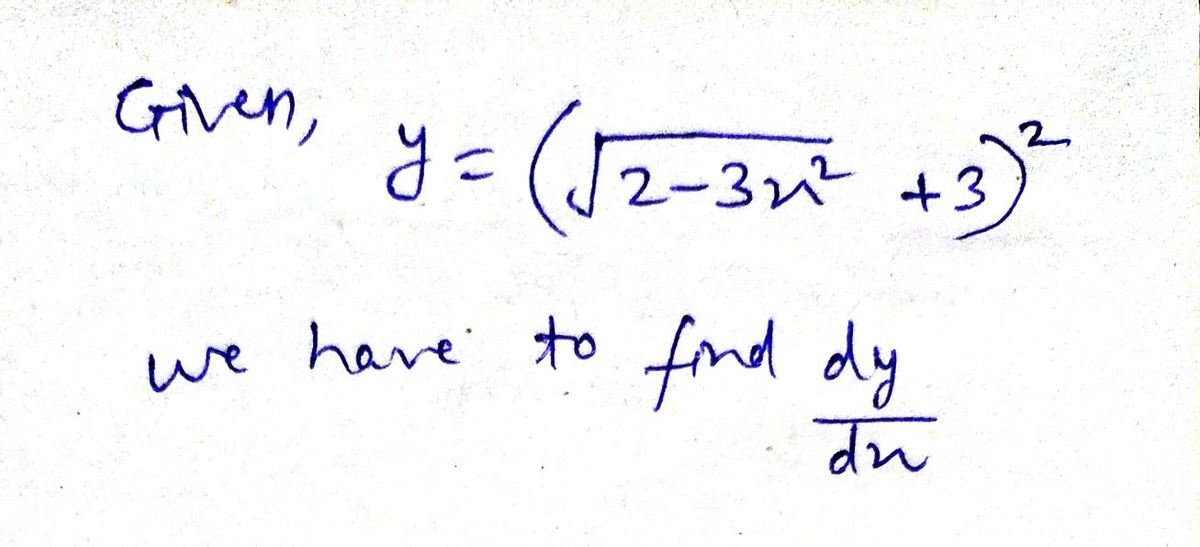 Given, y = (√2-3x² +3)²
we have to find dy
dx